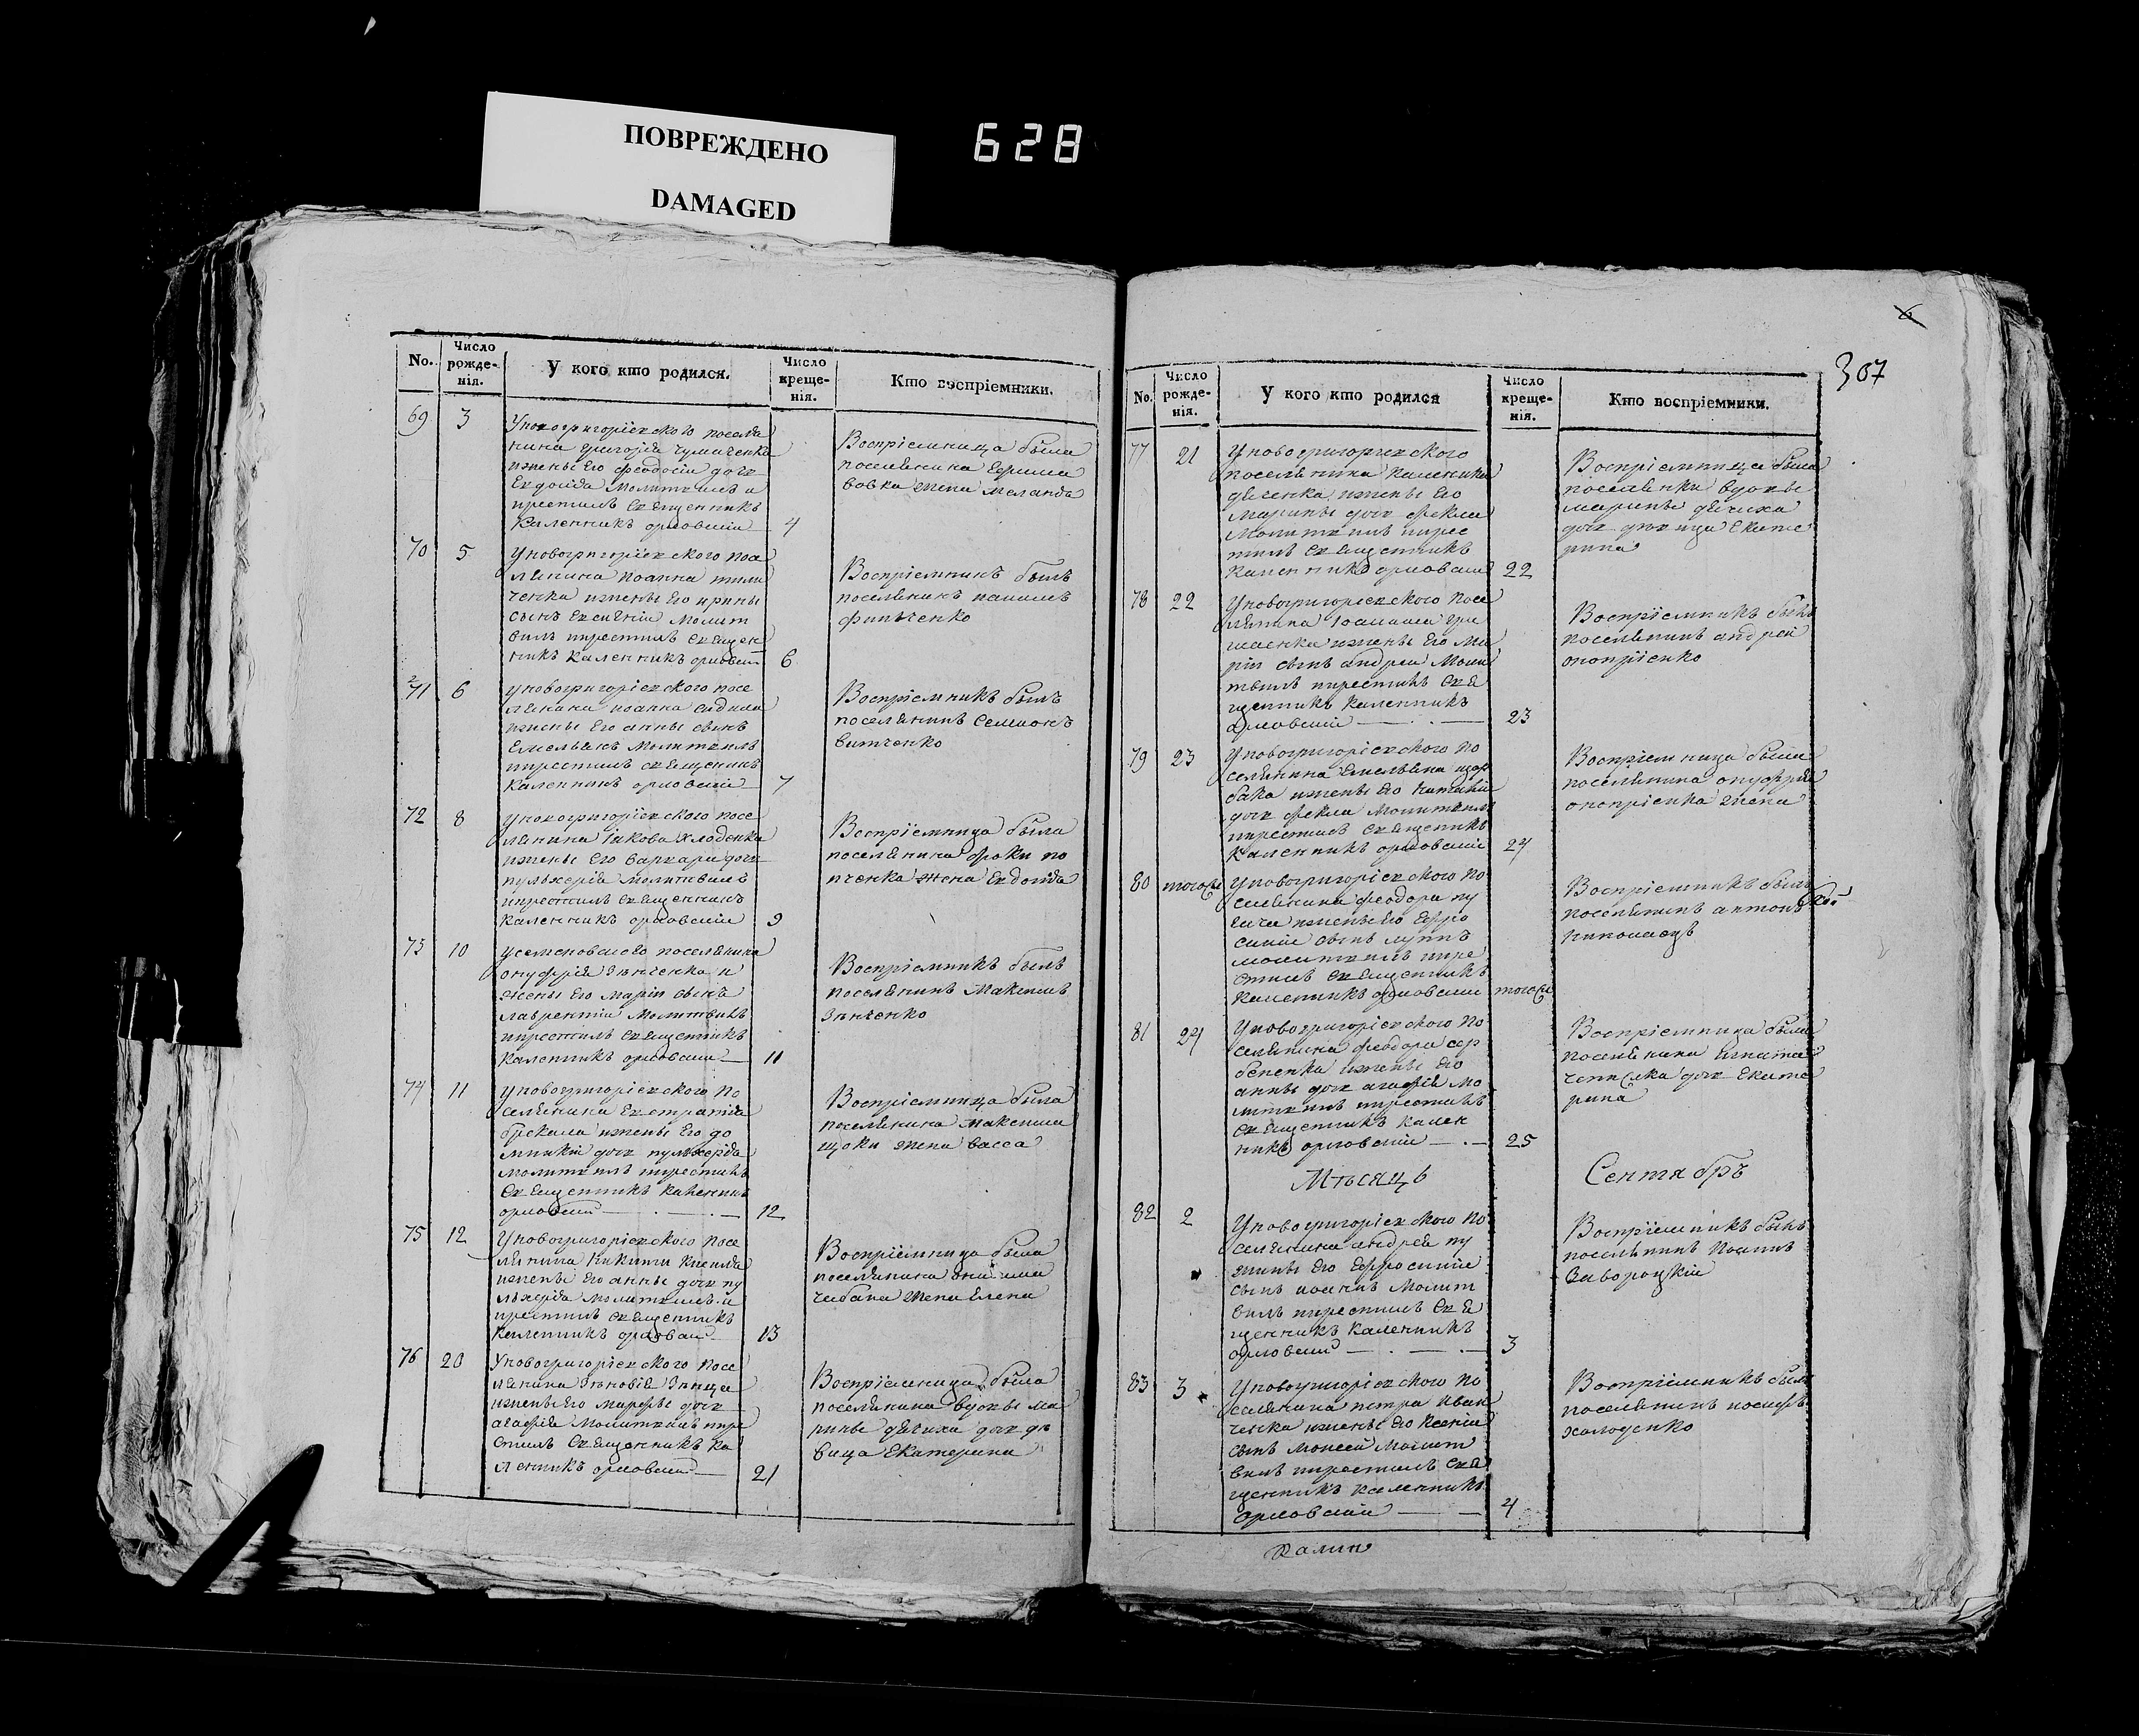 ПОВРЕЖДЕНО
DAMAGED
628
No.
Число рожде-нія.
У кого кто родился.
Число креще-нія.
Кто воспріемники.
69 3
Уновогригоріевского поселя
нина григорія
ижены его феодосіи дочь
Евдокія молитвилъ и
крестилъ священникъ
Каленникъ орловскій 4
Воспріемница была
поселянина
жена меланія
70 5
Уновогригоріевского посе
лянина иоанна
ченка ижены его ирины
сынъ Евсигній молит
вилъ икрестилъ священ
никъ каленникъ орловскій 6
Воспріемникъ былъ
поселянинъ
71 6
Уновогригоріевского посе
лянина иоанна
ижены его анны сынъ
Емельянъ молитвилъ
икрестилъ священникъ
Каленникъ орловскій 7
Воспріемникъ былъ
поселянинъ Семионъ
витченко
72 8
Уновогригоріевского посе
лянина іякова холоденка
ижены его варвары дочь
пульхерія молитвилъ
икрестилъ священникъ
каленникъ орловскій 9
Воспріемница была
поселянина фоки по
пченка жена Евдокія
73 10
поселянина
онуфрія зѣнченка и
жены его маріи сынъ
лаврентій молитвилъ
икрестилъ священникъ
каленникъ орловскій 11
Воспріемникъ былъ
поселянинъ максимъ
зѣнченко
74 11
Уновогригоріевского по
селянина Евстратія
ижены его до
мникіи дочь пульхерія
молитвилъ икрестилъ
священникъ каленникъ
орловскій 12
Воспріемница была
поселянина максима
щоки жена васса
75 12
Уновогригоріевского посе
лянина никиты
ижены его анны дочь пу
льхерія молитвилъ и
крестилъ священникъ
каленникъ орловскій 13
Воспріемница была
поселянина
чабана жена Елена
76 20
Уновогригоріевского посе
лянина зѣновія
ижены его марфы дочь
агафія молитвилъ икре
стилъ священникъ ка
ленникъ орловскій 21
Воспріемница была
поселянина вдовы ма
рины дячихи дочь дѣ
вица Екатерина
307
No.
Число рожде-нія.
У кого кто родился
Число креще-нія.
Кто воспріемники.
77 21
Уновогригориевского
поселянина каленика
дяченка ижены его
марины дочь фекла
молитвилъ икрес
тилъ священникъ
каленникъ орловскій 22
Воспріемница была
поселянки вдовы
марины дячихи
дочь дѣвица Екате
рина
78 22
Уновогригоріевского посе
лянина іоакима гри
ценка ижены его ма
ріи сынъ андрей моли
твилъ икрестилъ свя
щенникъ каленникъ
орловскій 23
Воспріемникъ былъ
поселянинъ андрей
оноприенко
79 23
Уновогригоріевского по
селянина Емельяна щер
бака ижены его
дочь фекла молитвилъ
икрестилъ священникъ
каленникъ орловскій 24
Воспріемница была
поселянина онуфрія
оноприенка жена
80 тогож
Уновогригоріевского по
селянина феодора
ижены его Ефро
синіи сынъ луппъ
молитвилъ икре
стилъ священникъ
каленникъ орловскій тогож
Воспріемникъ былъ
поселянинъ антонъ
николаецъ
81 24
Уновогригоріевского по
селянина феодора сер
бененка ижены его
анны дочь агафія мо
литвилъ икрестилъ
священникъ кален
никъ орловскій 25
Воспріемница была
поселянина игната
дочь Екате
рина
Мѣсяцъ Сентябрь
82 2
Уновогригоріевского по
селянина андрея
жены его Ефросиніи
сынъ иоаннъ молит
вилъ икрестилъ свя
щенникъ каленникъ
орловскій 3
Воспріемникъ былъ
поселянинъ иоаннъ
заворотній
83 3
Уновогригоріевского по
селянина петра иван
ченка ижены его ксеніи
сынъ моисей молит
вилъ икрестилъ свя
щенникъ каленникъ
орловскій 4
Воспріемникъ былъ
поселянинъ иосифъ
холоденко